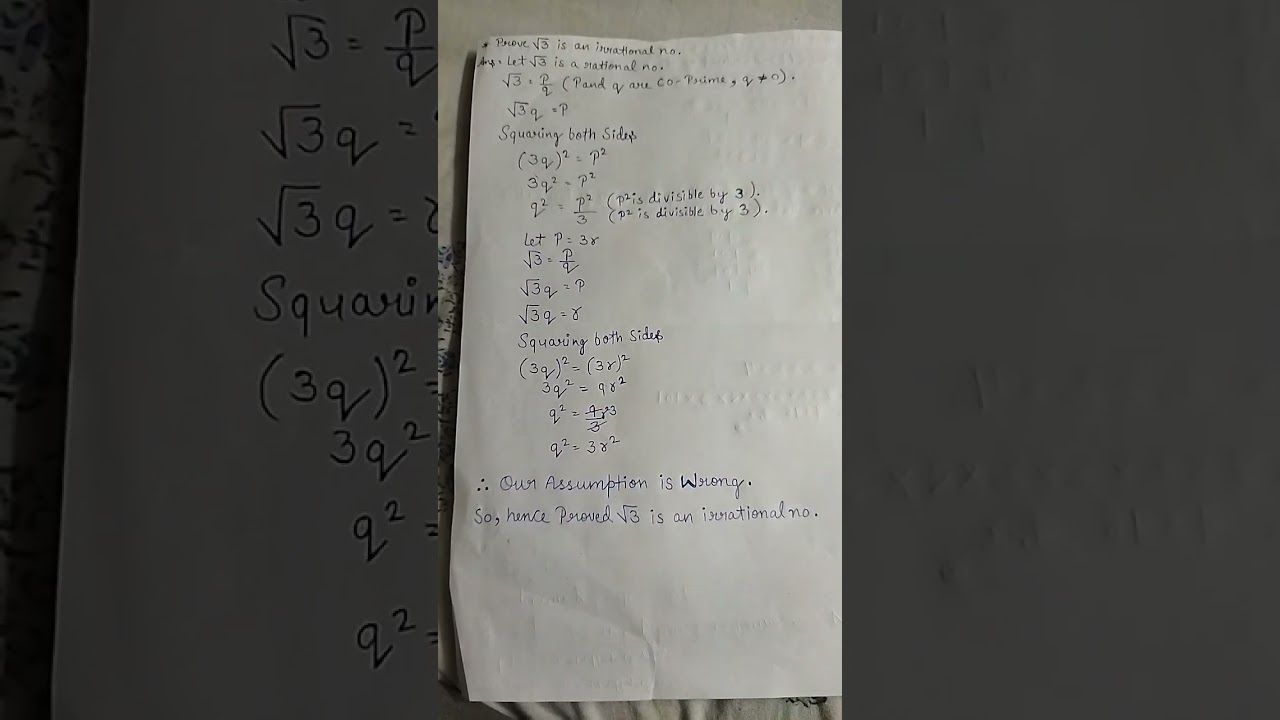 * Prove √3 is an irrational no.
Ans = Let √3 is a rational no.
√3 = P/q (P and q are co-Prime, q ≠ 0).
√3q = P
Squaring both Sides
(3q)² = P²
3q² = P²
q² = P²/3 (p² is divisible by 3).
(p² is divisible by 3).
Let P = 3r
√3 = P/q
√3q = P
√3q = r
Squaring both Sides
(3q)² = (3r)²
3q² = 9r²
q² = 9r²3/3
q² = 3r²
∴ Our Assumption is Wrong.
So, hence Proved √3 is an irrational no.
√3 = P/q
√3q =
√3q = r
Squarin
(3q)² =
3q²
q² =
q² =